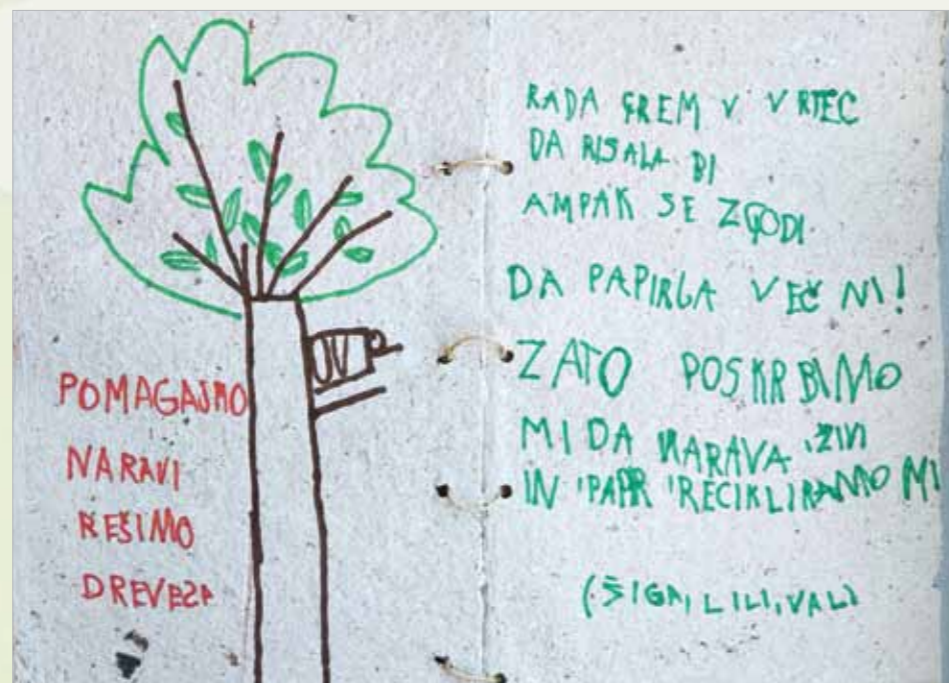 POMAGAJMO
NARAVI
REŠIMO
DREVESA
RADA GREM V VRTEC
DA RISALA BI
AMPAK SE ZGODI
DA PAPIRGA VEČ NI!
ZATO POSKRBIMO
MI DA NARAVA ŽIVI
IN PAPIR RECIKLIRAMO MI
(ŽIGA, LILI, VAL)